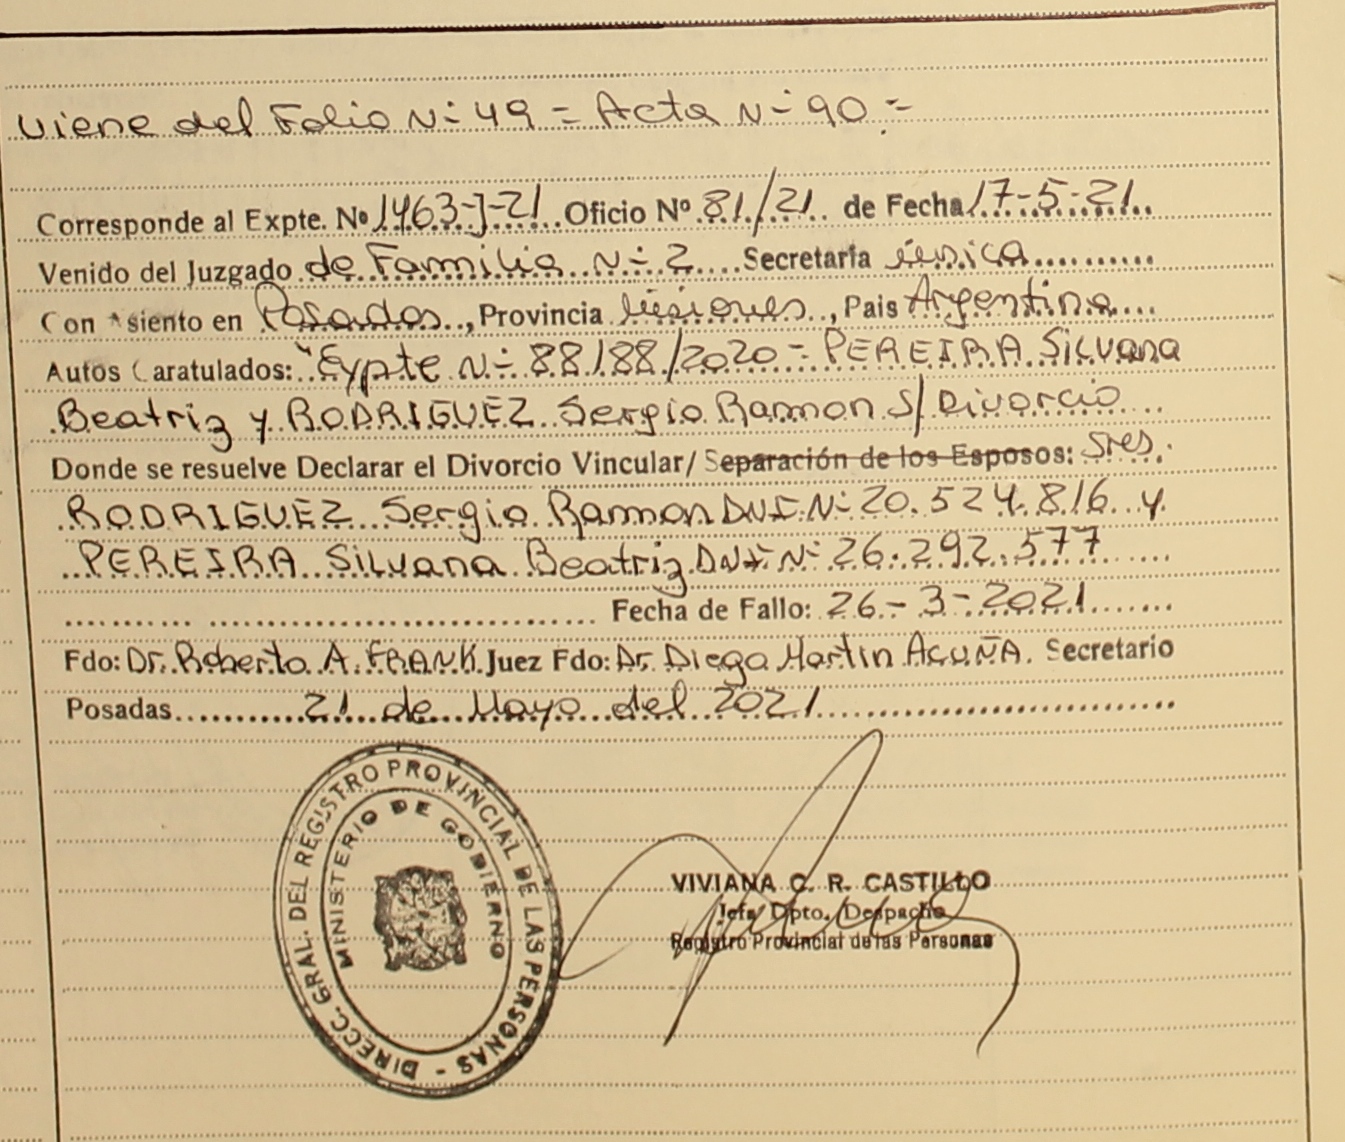 Viene del Folio Nº 49 = Acta Nº 90 =
Corresponde al Expte. Nº 1463-J-21 Oficio Nº 81/21 de Fecha 17-5-21
Venido del Juzgado de Familia Nº 2 Secretaría única
Con Asiento en Posadas, Provincia Misiones, País Argentina
Autos Caratulados: "Expte Nº 88188/2020 = PEREIRA Silvana
Beatriz y RODRIGUEZ Sergio Ramon S/ Divorcio
Donde se resuelve Declarar el Divorcio Vincular/ Separación de los Esposos: Sres.
RODRIGUEZ Sergio Ramon DNI Nº 20.524.816 y
PEREIRA Silvana Beatriz DNI Nº 26.292.577
Fecha de Fallo: 26-3-2021
Fdo: Dr. Roberto A. FRANK Juez Fdo: Dr. Diego Martin ACUÑA. Secretario
Posadas 21 de Mayo del 2021
DIRECC. GRAL. DEL REGISTRO PROVINCIAL DE LAS PERSONAS -
MINISTERIO DE GOBIERNO
VIVIANA C. R. CASTILLO
Jefa Dpto. Despacho
Registro Provincial de las Personas